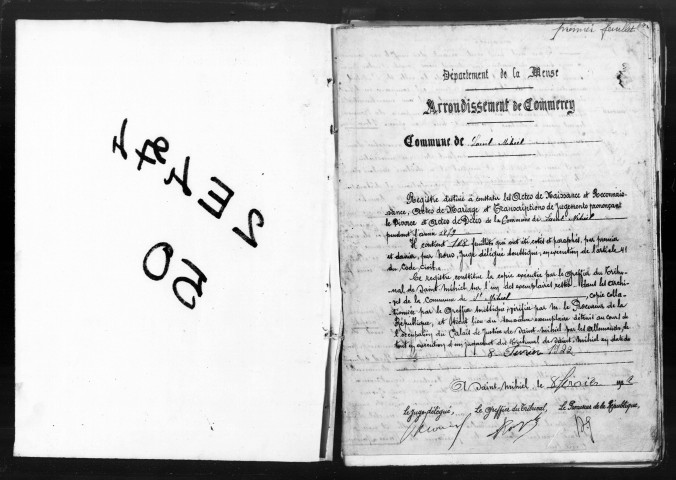 2 E 471
50
premier feuillet
Département de la Meuse
Arrondissement de Commercy
Commune de Saint Mihiel
Registre destiné à constater les Actes de Naissance et Reconnais-
sance, Actes de Mariage et Transcriptions de Jugements prononçant
le Divorce et Actes de Décès de la Commune de Saint Mihiel
pendant l'année 1879
Il contient feuillets qui ont été cotés et paraphés, par premier
et dernier, par Nous, Juge délégué soussigné, en exécution de l'article 41
du Code civil.
Ce registre constitue la copie exécutée par le Greffier du Tribu-
nal de Saint-Mihiel sur l'un des exemplaires resté dans les archi-
ves de la Commune de St Mihiel, copie colla-
tionnée par le Greffier soussigné, vérifiée par M. le Procureur de la
République, et tient lieu du deuxième exemplaire détruit au cours de
l'occupation du Palais de Justice de Saint-Mihiel par les allemands, le
tout en exécution d'un jugement du Tribunal de Saint-Mihiel en date du
8 Février 1922
A Saint-Mihiel le 8 février 192
Le Juge délégué, Le Greffier du Tribunal, Le Procureur de la République,